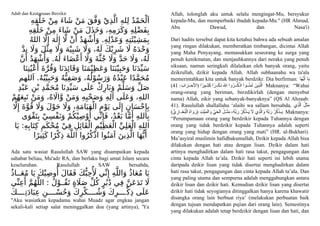 Adab dan Keutamaan Berzikir
الْحَمْدُ لِلَّهِ الَّذِيْ وَفَّقَ مَنْ شَاءَ مِنْ خَلْقِهِ
بِفَضْلِهِ وَكَرَمِهِ، وَخَذَلَ مَنْ شَاءَ مِنْ خَلْقِهِ
بِمَشِيْئَتِهِ وَعَدْلِهِ. وَأَشْهَدُ أَنْ لَا إِلَهَ إِلَّا اللهُ
وَحْدَهُ لَا شَرِيْكَ لَهُ، وَلَا شَبِيْهَ وَلَا مِثْلَ وَلَا نِدَّ
لَهُ، وَلَا حَدَّ وَلَا جُثَّةَ وَلَا أَعْضَاءَ لَهُ. وَأَشْهَدُ أَنَّ
سَيِّدَنَا وَحَبِيْبَنَا وَعَظِيْمَنَا وَقَائِدَنَا وَقُرَّةَ أَعْيُنِنَا
مُحَمَّدًا عَبْدُهُ وَرَسُوْلُهُ، وَصَفِيُّهُ وَحَبِيْبُهُ. اَللهم
صَلِّ وَسَلِّمْ وَبَارِكْ عَلَى سَيِّدِنَا مُحَمَّدِ بْنِ عَبْدِ
اللهِ، وَعَلَى آلِهِ وَصَحْبِهِ وَمَنْ وَّالَاهُ، وَمَنْ تَبِعَهُمْ
بِإِحْسَانٍ إِلَى يَوْمِ الْقِيَامَةِ، وَلَا حَوْلَ وَلَا قُوَّةَ إِلَّا
بِاللهِ أَمَّا بَعْدُ، فَإِنِّي أُوْصِيْكُمْ وَنَفْسِيْ بِتَقْوَى
اللهِ الْعَلِيِّ الْعَظِيْمِ الْقَائِلِ فِيْ مُحْكَمِ كِتَابِهِ: يَا
أَيُّهَا الَّذِينَ آمَنُوا اذْكُرُوا اللَّهَ ذِكْرًا كَثِيرًا
Ada satu wasiat Rasulullah SAW yang disampaikan kepada
sahabat beliau, Mu'adz RA, dan berlaku bagi umat Islam secara
keseluruhan. Rasulullah SAW bersabda,
يَا مُعَاذُ وَاللَّهِ إِنِّي لَأُحِبُّكَ فَقَالَ أُوصِيكَ يَا مُعَـاذُ
لَا تَدَعَنَّ فِي دُبُرِ كُلِّ صَلَاةٍ تَقُـوْلُ : اللَّهُمَّ أَعِنِّي
عَلَى ذِكْـــرِكَ وَشُـــكْرِكَ وَحُسْـــنِ عِبَادَتِـــكَ
"Aku wasiatkan kepadamu wahai Muadz agar engkau jangan
sekali-kali setiap salat meninggalkan doa (yang artinya), 'Ya
Allah, tolonglah aku untuk selalu mengingat-Mu, bersyukur
kepada-Mu, dan memperbaiki ibadah kepada-Mu." (HR Ahmad,
Abu Dawud, dan Nasa'i)
Dari hadits tersebut dapat kita ketahui bahwa ada sebuah amalan
yang ringan dilakukan, membuatkan timbangan, dicintai Allah
yang Maha Penyayang, memasukkan seseorang ke surga yang
penuh kenikmatan, dan menjauhkannya dari neraka yang penuh
siksaan, namun seringkali dilalaikan oleh banyak orang, yaitu
dzikrullah, dzikir kepada Allah. Allah subhanahu wa ta'ala
Maknanya: "Wahai
orang-orang yang beriman, berdzikirlah (dengan menyebut
nama) Allah, zikir yang sebanyak-banyaknya" (QS Al Ahzaab:
"Perumpamaan orang yang berdzikir kepada Tuhannya dengan
orang yang tidak berdzikir kepada Tuhannya adalah seperti
orang yang hidup dengan orang yang mati" (HR. al-Bukhari).
Ma'asyiral muslimin hafidhakumullah, Dzikir kepada Allah bisa
dilakukan dengan hati atau dengan lisan. Dzikir dalam hati
artinya menghadirkan dalam hati rasa takut, pengagungan dan
cinta kepada Allah ta'ala. Dzikir hati seperti ini lebih utama
daripada dzikir lisan yang tidak disertai menghadirkan dalam
hati rasa takut, pengagungan dan cinta kepada Allah ta'ala. Dan
yang paling utama dan sempurna adalah menggabungkan antara
dzikir lisan dan dzikir hati. Kemudian dzikir lisan yang disertai
dzikir hati tidak seyogianya ditinggalkan hanya karena khawatir
disangka orang lain berbuat riya' (melakukan perbuatan baik
dengan tujuan mendapatkan pujian dari orang lain). Semestinya
yang dilakukan adalah tetap berdzikir dengan lisan dan hati, dan